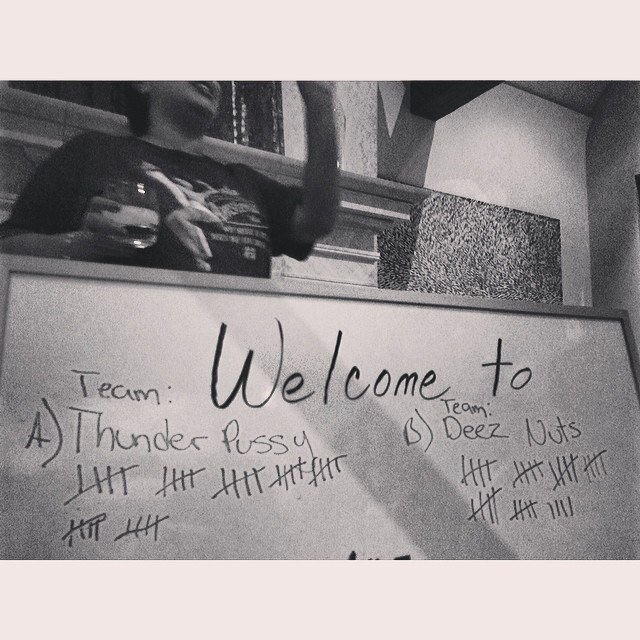 Welcome to
Team:
A) Thunder Pussy
Team:
B) Deez Nuts